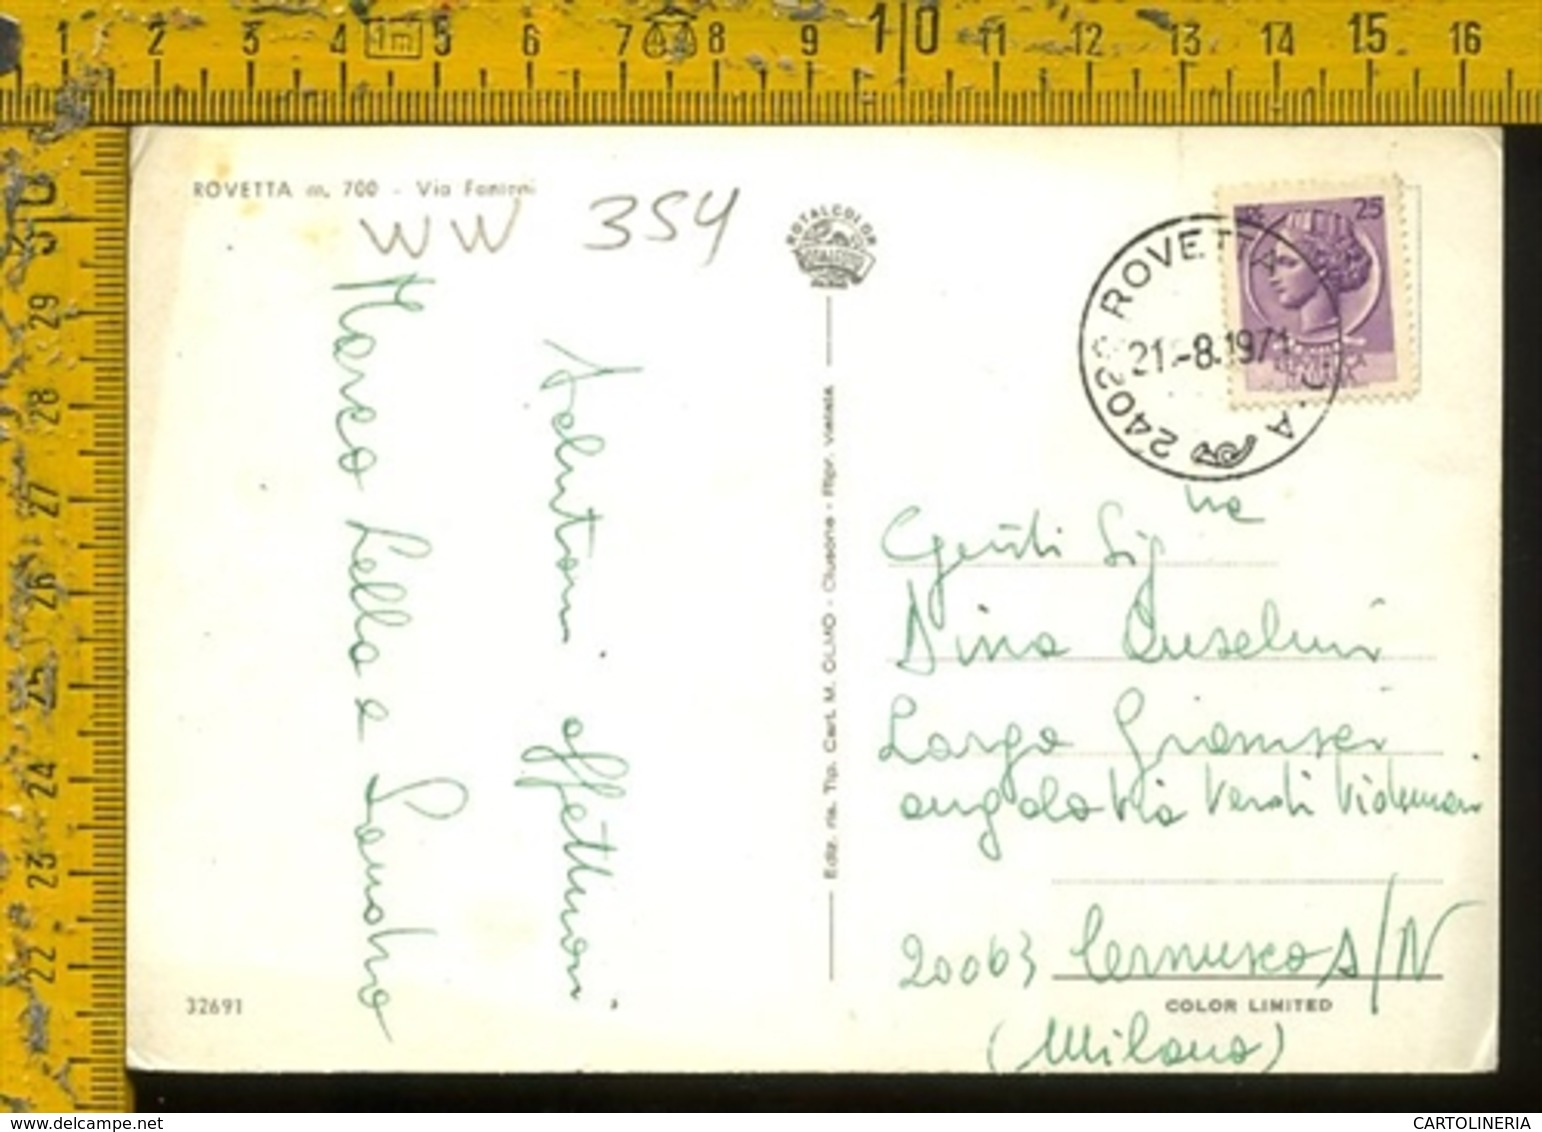 1 2 3 4 1m 5 6 7 8 9 10 11 12 13 14 15 16
30 29 28 27 26 25 24 23 22
ROVETTA m. 700 - Via Fantoni
WW 354
Salutoni affettuosi
Marco Lella e Sandro
32691
ROTALCOLOR
Ediz. ris. Tip. Cart. M. OLMO - Clusone - Ripr. Vietata
LIRE 25
24020 ROVETTA
21.-8.1971
Gentili Sig.ne
Dina Anselmi
Largo Gramsci
angolo Via Verdi
20063 Cernusco S/N
COLOR LIMITED
(Milano)
CARTOLINERIA